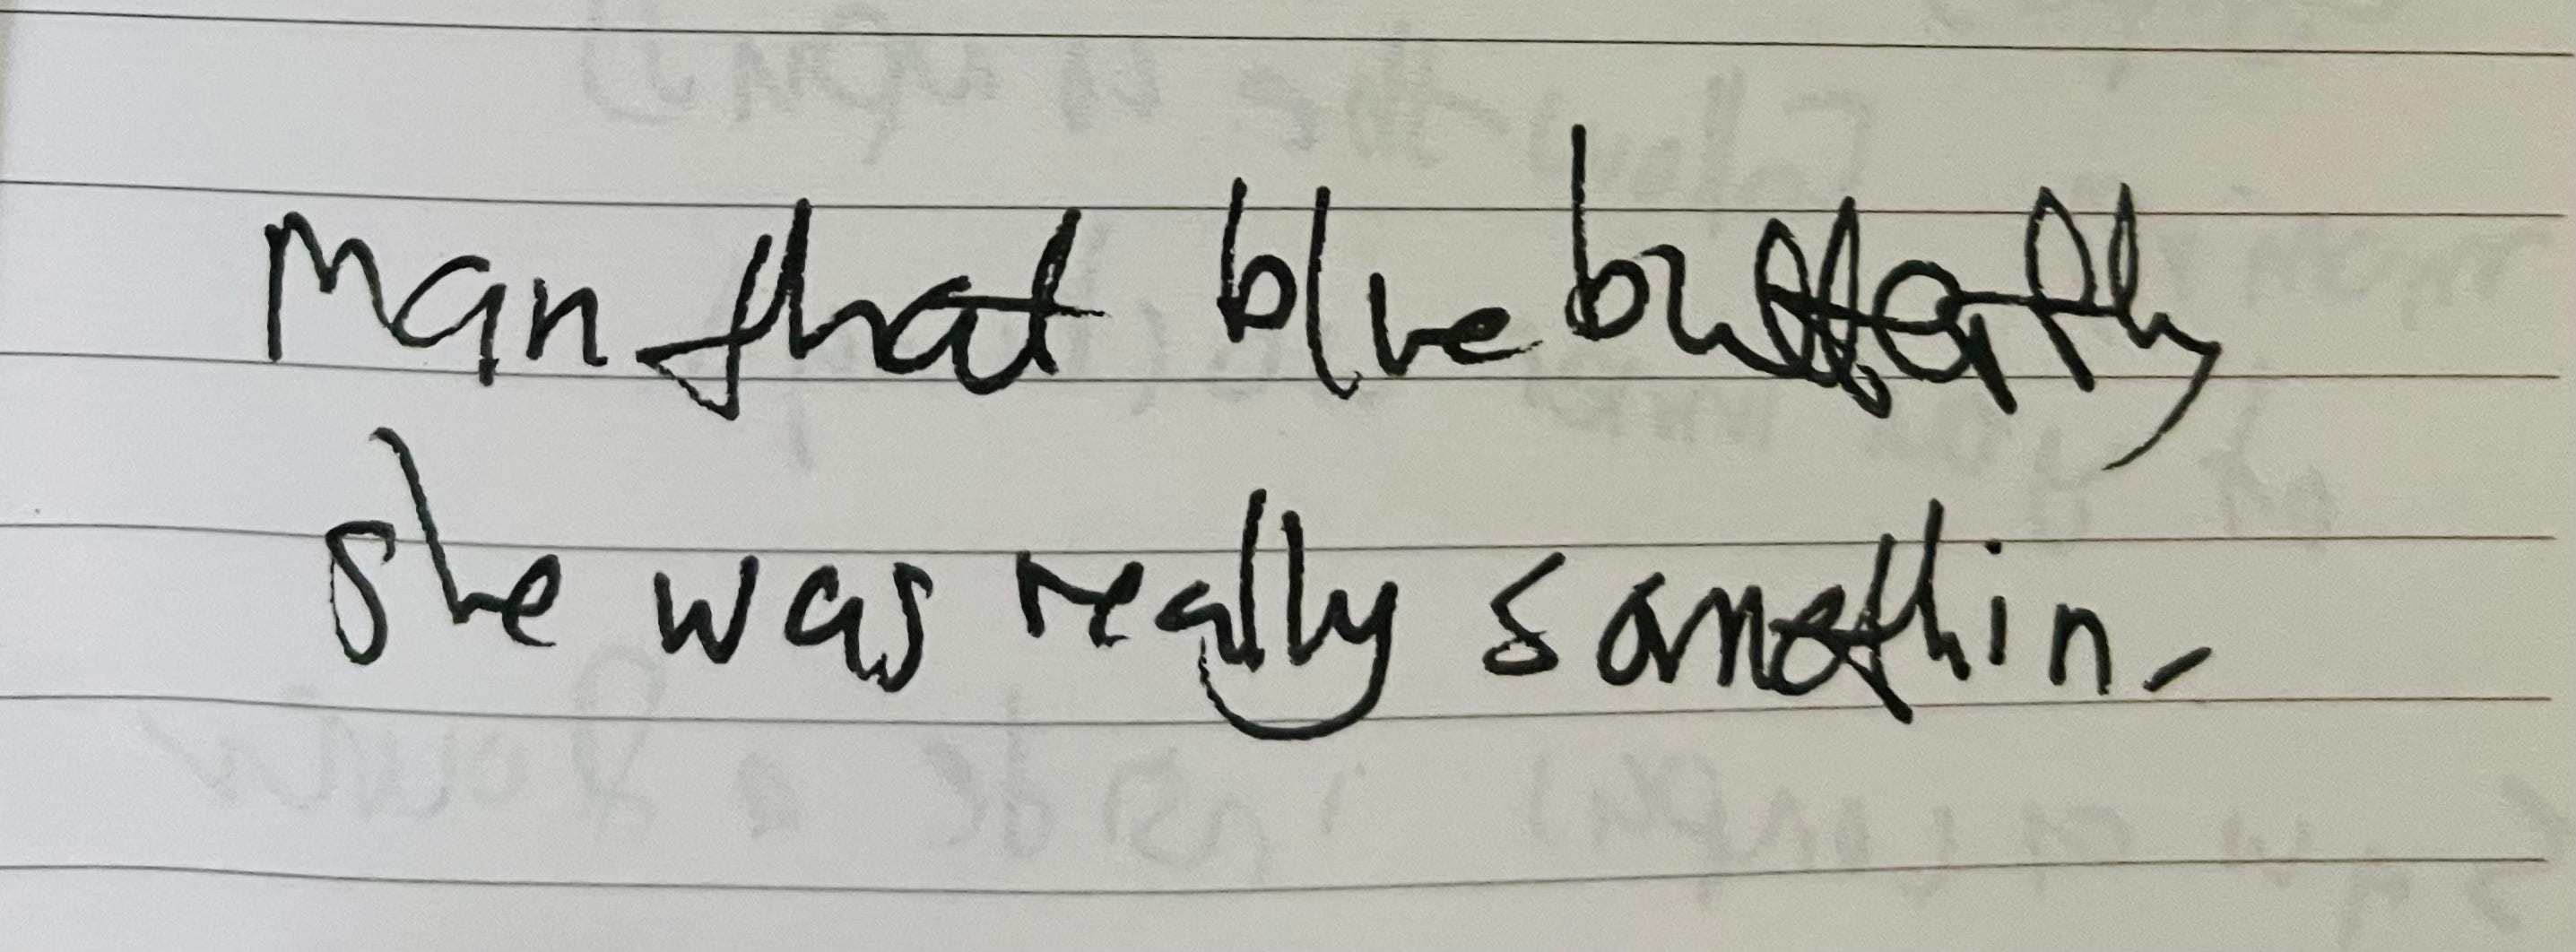 Man that blue butterfly
she was really somethin.